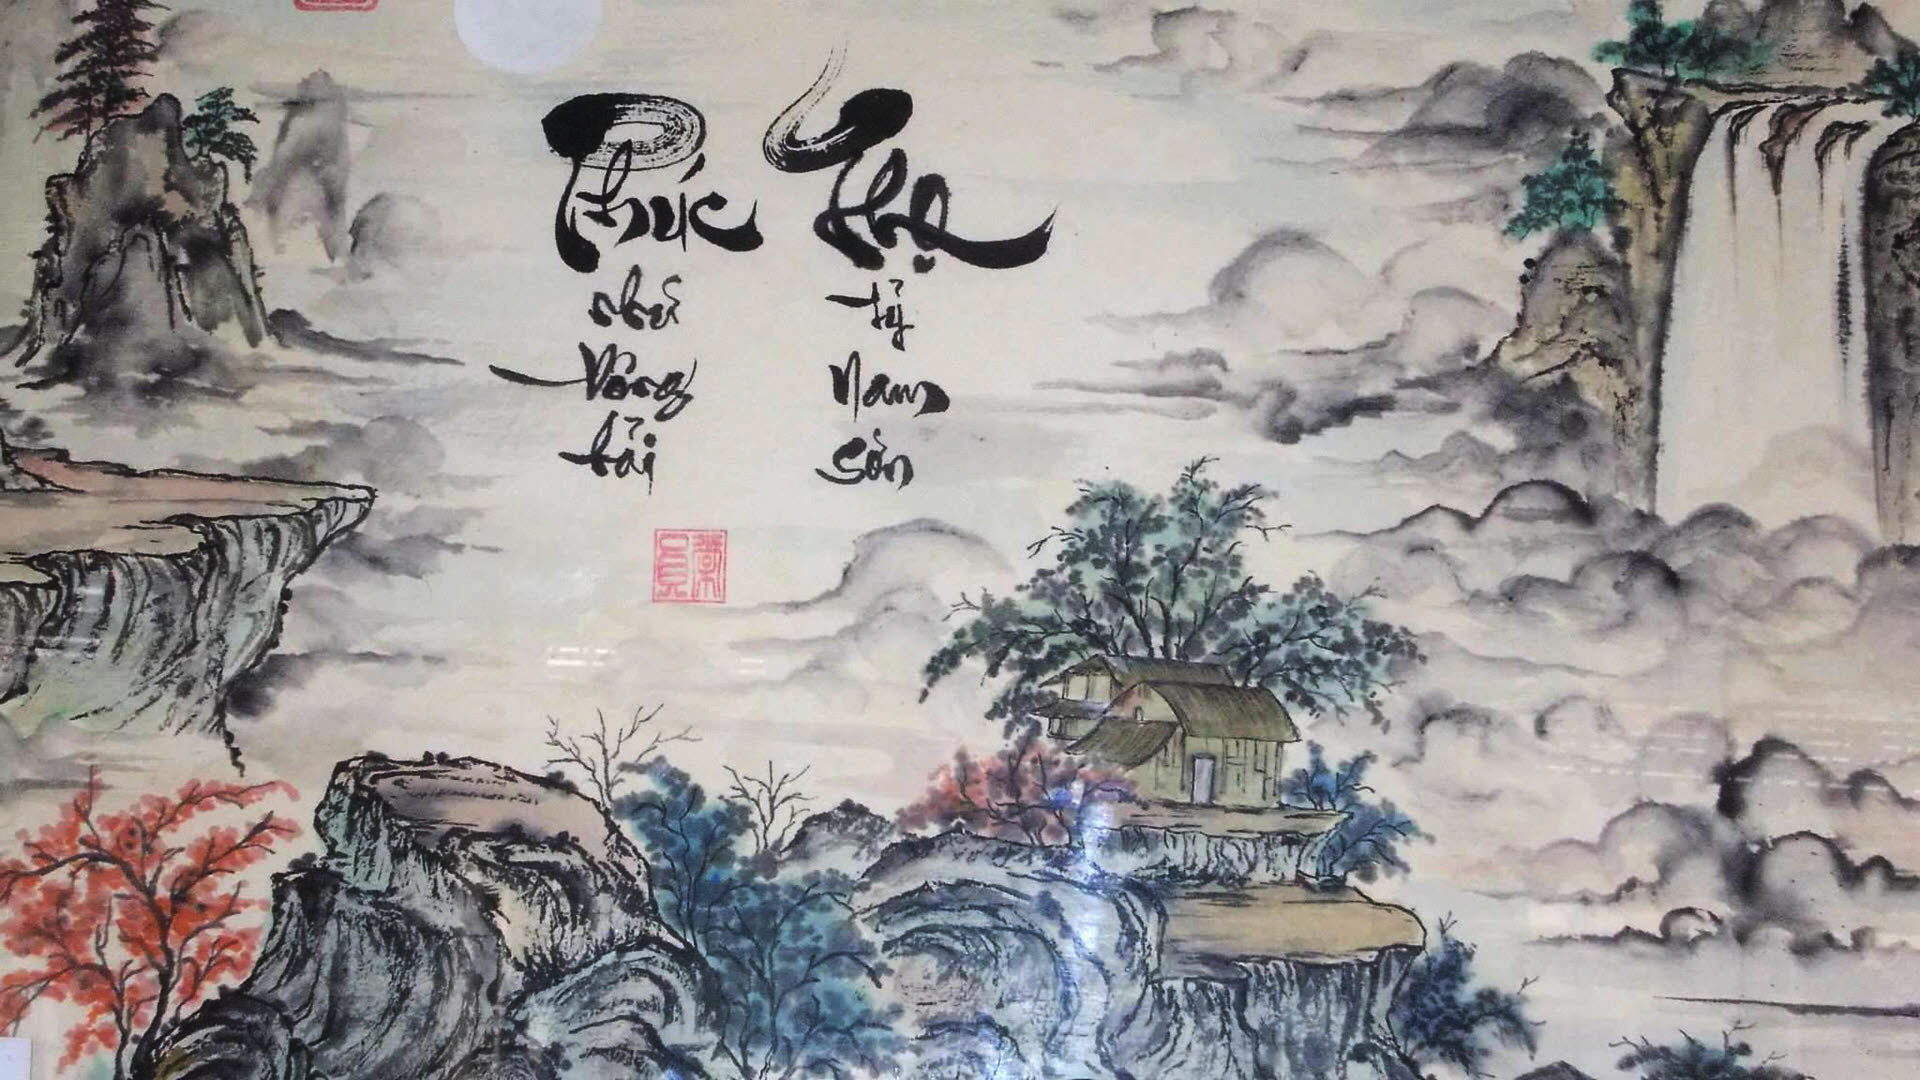 Phúc
như
Đông
hải
Thọ
tỷ
Nam
Sơn